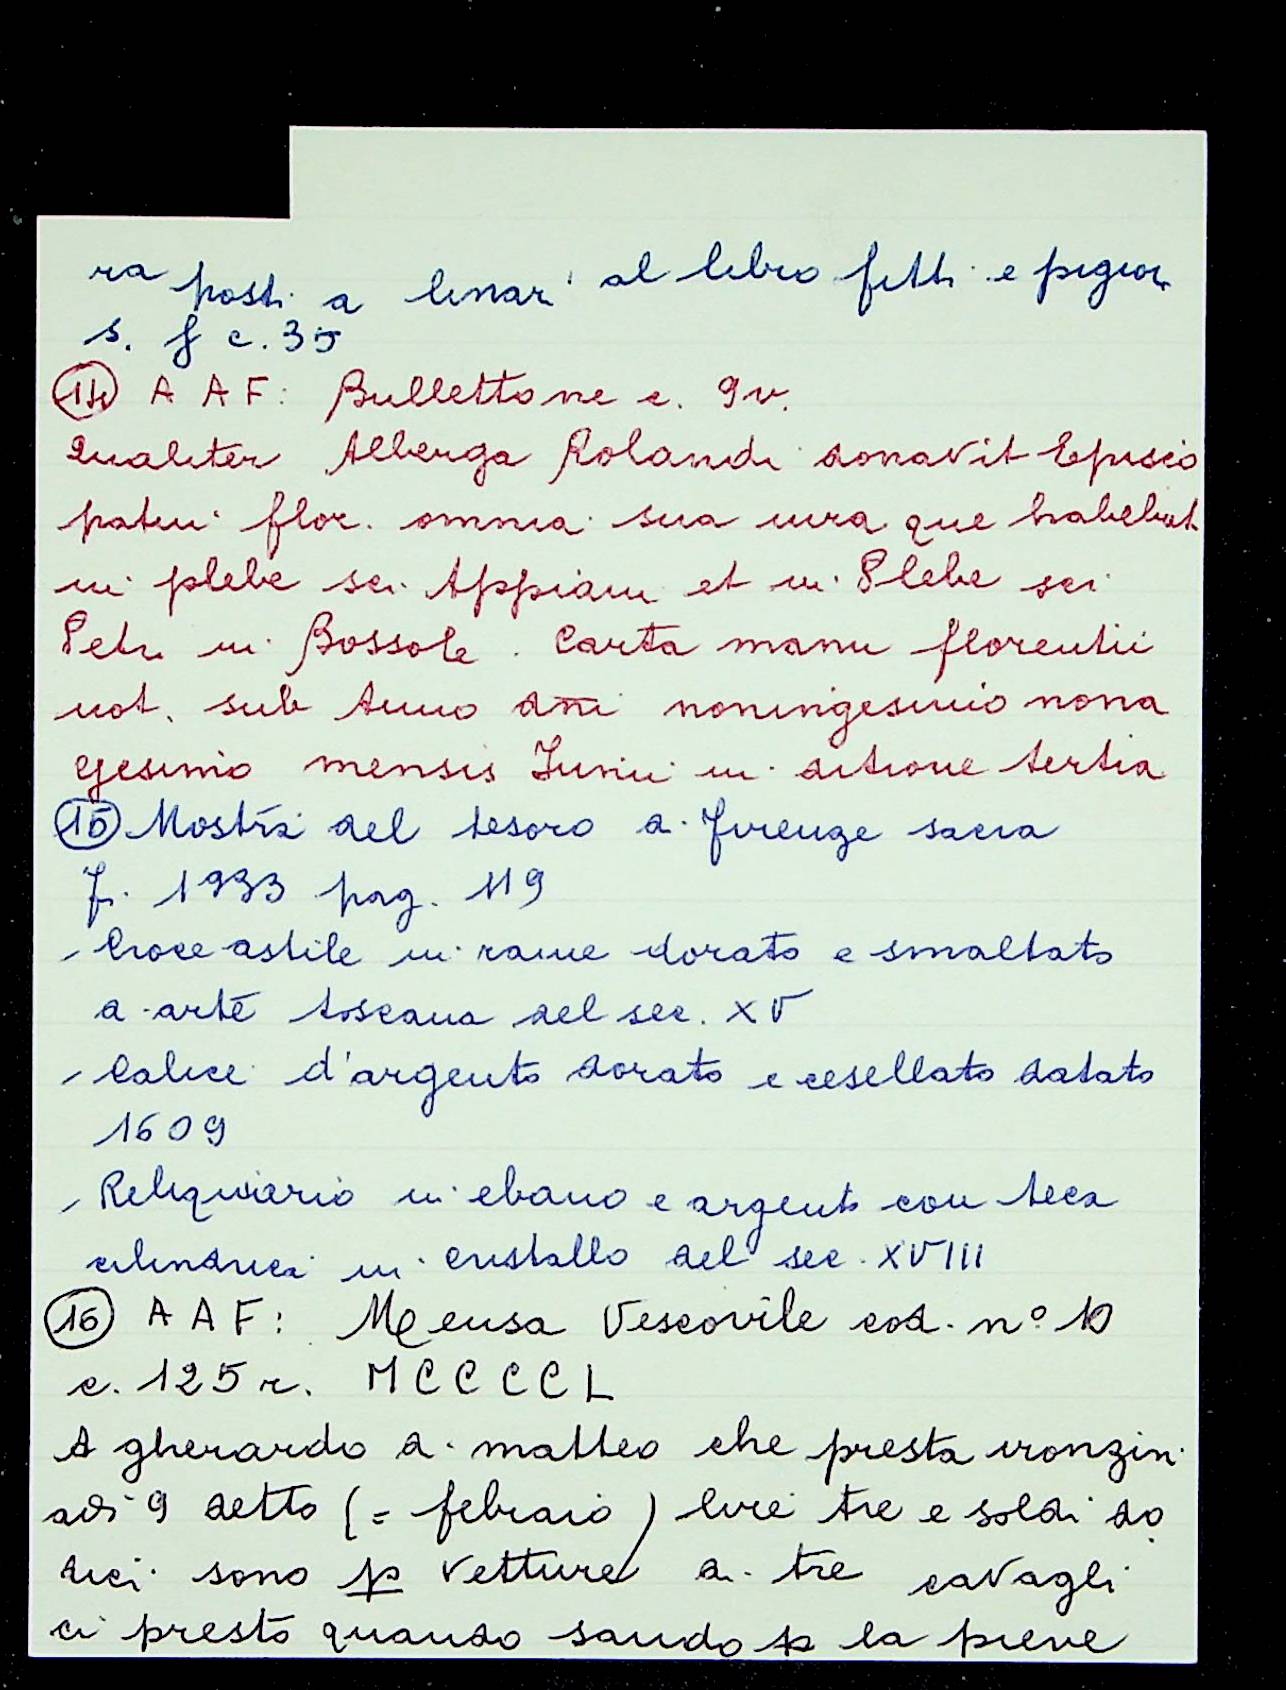 ra posti a lenari al libro fitti e pigion
s. f c. 35
(14) A A F: Bullettone c. 9v.
Qualiter Alberga Rolandi donavit Episco
patui flor. omnia sua iura que habebat
in plebe sci Appiani et in Plebe sci
Petri in Bossole. Carta manu florentii
not. sub Anno dni noningesimo nona
gesimo mensis Iunii in ditione tertia
(15) Mostra del tesoro di Firenze sacra
F. 1933 pag. 119
- Croce astile in rame dorato e smaltato
di arte toscana del sec. XV
- Calice d'argento dorato e cesellato datato
1609
- Reliquiario in ebano e argento con teca
cilindrica in cristallo del sec. XVIII
(16) A A F: Mensa Vescovile cod. n° 10
c. 125 r. MCCCCL
A gherardo di matteo che presta ronzini
adi 9 detto (= febraio) lire tre e soldi do
dici sono p vetture di tre cavagli
ci presto quando sando p la pieve